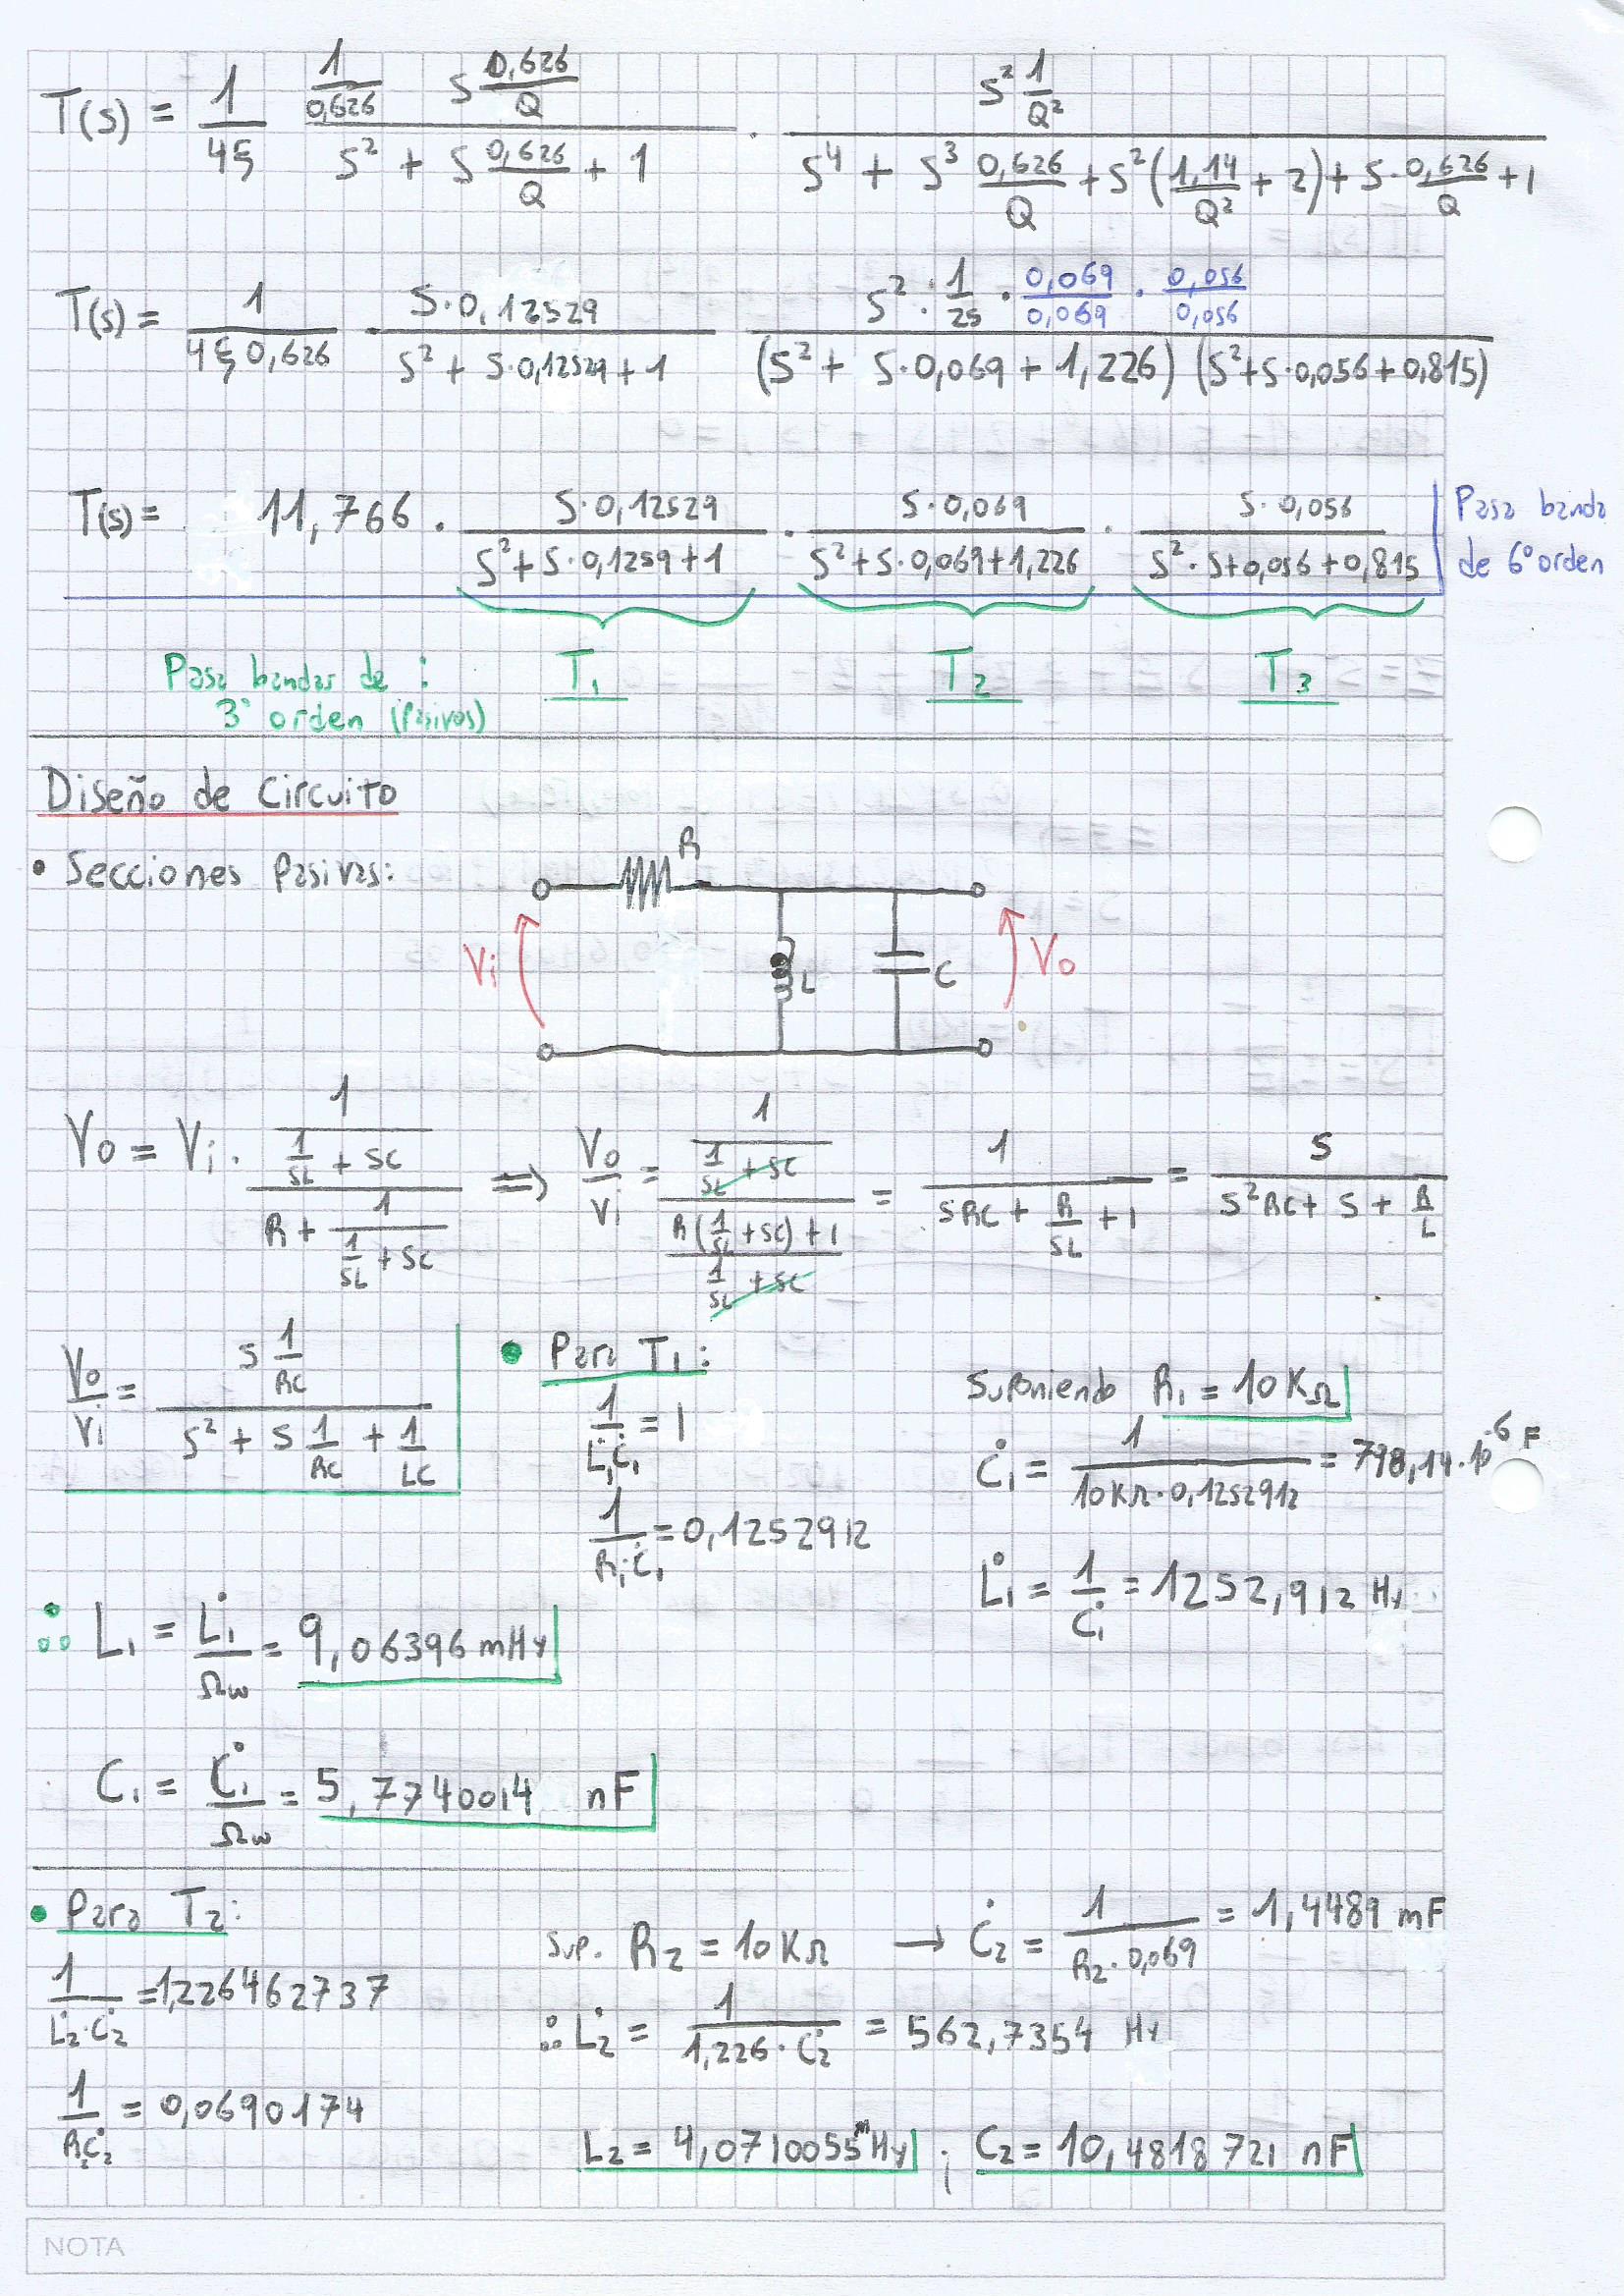 T(s) = 1/4ξ · (1/0,626 · S 0,626/Q)/(S² + S 0,626/Q + 1) · (S² 1/Q²)/(S⁴ + S³ 0,626/Q + S²(1,14/Q² + 2) + S·0,626/Q + 1)
T(s) = 1/(4ξ 0,626) · (S·0,12529)/(S² + S·0,12529 + 1) · (S² · 1/25 · 0,069/0,069 · 0,056/0,056)/((S² + S·0,069 + 1,226) (S²+S·0,056+0,815))
T(s) = 11,766 · (S·0,12529)/(S²+S·0,1259+1) · (S·0,069)/(S²+S·0,069+1,226) · (S·0,056)/(S²·S+0,056+0,815)
Pasa banda
de 6° orden
Pasa bandas de :
3° orden (Pasivos)
T₁ T₂ T₃
Diseño de Circuito
• Secciones Pasivas:
R
Vi
L
C
Vo
Vo = Vi · (1/(1/SL + SC))/(R + 1/(1/SL + SC)) ⇒ Vo/Vi = (1/(1/SL + SC))/((R(1/SL + SC) + 1)/(1/SL + SC)) = 1/(SRC + R/SL + 1) = S/(S²RC + S + R/L)
Vo/Vi = (S 1/RC)/(S² + S 1/RC + 1/LC)
• Para T₁:
1/(L̊₁C̊₁) = 1
1/(R₁·C̊₁) = 0,1252912
Suponiendo R₁ = 10KΩ
C̊₁ = 1/(10KΩ·0,1252912) = 798,14·10⁻⁶ F
L̊₁ = 1/C̊₁ = 1252,912 Hy
∴ L₁ = L̊₁/Ωw = 9,06396 mHy
C₁ = C̊₁/Ωw = 5,7740014 nF
• Para T₂:
1/(L̊₂·C̊₂) = 1,226462737
1/(R₂C̊₂) = 0,0690174
Sup. R₂ = 10KΩ → C̊₂ = 1/(R₂·0,069) = 1,4489 mF
∴ L̊₂ = 1/(1,226·C̊₂) = 562,7354 Hy
L₂ = 4,0710055 mHy ; C₂ = 10,4818721 nF
NOTA